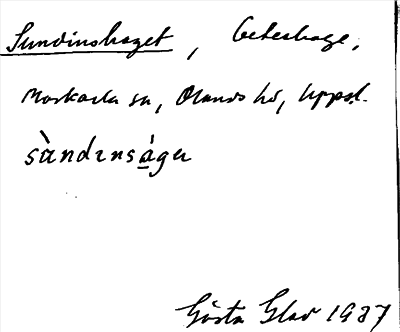 Sundinshaget, Beteshage,
Morkarla sn, Olands hd, Uppsl.
sàndɪnságeɩ
Gösta Glav 1937